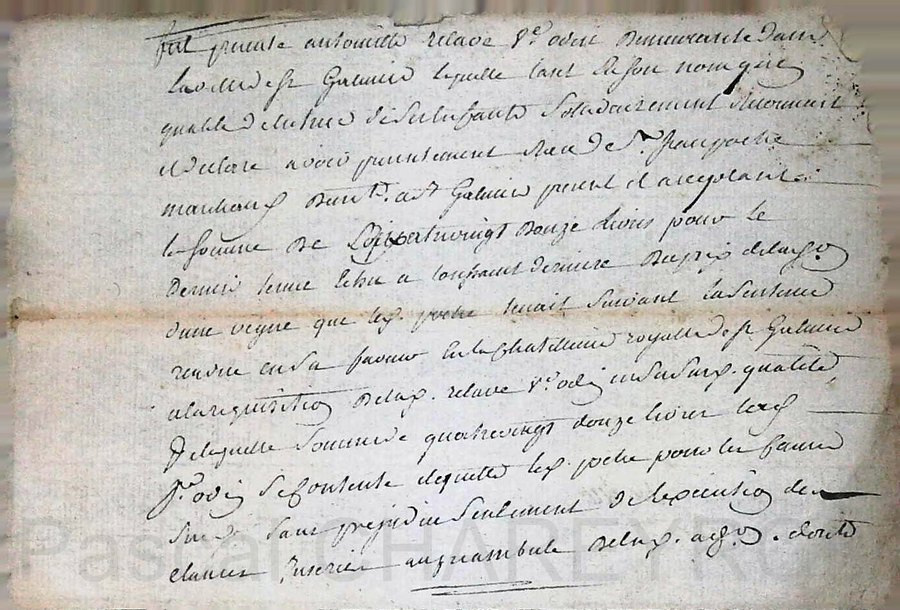 fut presente antoinette relave Ve odin Demeurante dans
la ville de st Galmier laquelle tant de son nom que
qualité de tutrice de ses enfants Solidairement reconnait
et declare avoir presentement Receu de Sr. Jean poche
marchand Demt. a st Galmier present et acceptant
la somme De quatrevingt Douze livres pour le
Dernier terme Echu a toussaint Derniere Du prix de la
d'une vigne que led. poche tenait suivant la Sentence
rendue en sa faveur En la Chatellenie royalle de st Galmier
a la requisition De lad. relave Ve odin en sa susd. qualité
De laquelle Somme de quatrevingt douze livres lad
Ve odin se Contente et quitte led. poche pour les causes
Susd. Sans prejudice Seulement de l'execution des
clauses Inserées au preambule De lad. dont
Pascal CHAREYRON